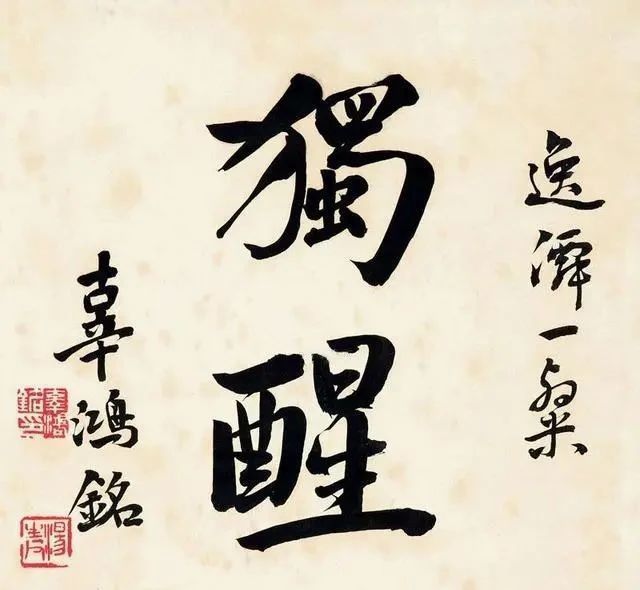 逸一粲
獨醒
辜鴻銘
辜鴻銘印
湯生